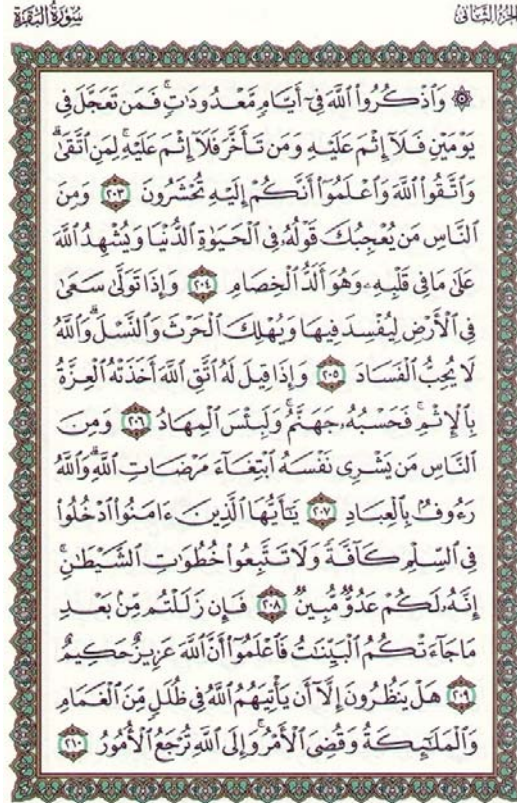 سُورَةُ البَقَرَةِ
الجُزْءُ الثَّانِي
۞ وَٱذْكُرُوا۟ ٱللَّهَ فِىٓ أَيَّامٍ مَّعْدُودَٰتٍ ۚ فَمَن تَعَجَّلَ فِى
يَوْمَيْنِ فَلَآ إِثْمَ عَلَيْهِ وَمَن تَأَخَّرَ فَلَآ إِثْمَ عَلَيْهِ ۚ لِمَنِ ٱتَّقَىٰ ۗ
وَٱتَّقُوا۟ ٱللَّهَ وَٱعْلَمُوٓا۟ أَنَّكُمْ إِلَيْهِ تُحْشَرُونَ ۝٢٠٣ وَمِنَ
ٱلنَّاسِ مَن يُعْجِبُكَ قَوْلُهُۥ فِى ٱلْحَيَوٰةِ ٱلدُّنْيَا وَيُشْهِدُ ٱللَّهَ
عَلَىٰ مَا فِى قَلْبِهِۦ وَهُوَ أَلَدُّ ٱلْخِصَامِ ۝٢٠٤ وَإِذَا تَوَلَّىٰ سَعَىٰ
فِى ٱلْأَرْضِ لِيُفْسِدَ فِيهَا وَيُهْلِكَ ٱلْحَرْثَ وَٱلنَّسْلَ ۗ وَٱللَّهُ
لَا يُحِبُّ ٱلْفَسَادَ ۝٢٠٥ وَإِذَا قِيلَ لَهُ ٱتَّقِ ٱللَّهَ أَخَذَتْهُ ٱلْعِزَّةُ
بِٱلْإِثْمِ ۚ فَحَسْبُهُۥ جَهَنَّمُ ۚ وَلَبِئْسَ ٱلْمِهَادُ ۝٢٠٦ وَمِنَ
ٱلنَّاسِ مَن يَشْرِى نَفْسَهُ ٱبْتِغَآءَ مَرْضَاتِ ٱللَّهِ ۗ وَٱللَّهُ
رَءُوفٌۢ بِٱلْعِبَادِ ۝٢٠٧ يَٰٓأَيُّهَا ٱلَّذِينَ ءَامَنُوا۟ ٱدْخُلُوا۟
فِى ٱلسِّلْمِ كَآفَّةً وَلَا تَتَّبِعُوا۟ خُطُوَٰتِ ٱلشَّيْطَٰنِ ۚ
إِنَّهُۥ لَكُمْ عَدُوٌّ مُّبِينٌ ۝٢٠٨ فَإِن زَلَلْتُم مِّنۢ بَعْدِ
مَا جَآءَتْكُمُ ٱلْبَيِّنَٰتُ فَٱعْلَمُوٓا۟ أَنَّ ٱللَّهَ عَزِيزٌ حَكِيمٌ
۝٢٠٩ هَلْ يَنظُرُونَ إِلَّآ أَن يَأْتِيَهُمُ ٱللَّهُ فِى ظُلَلٍ مِّنَ ٱلْغَمَامِ
وَٱلْمَلَٰٓئِكَةُ وَقُضِىَ ٱلْأَمْرُ ۚ وَإِلَى ٱللَّهِ تُرْجَعُ ٱلْأُمُورُ ۝٢١٠